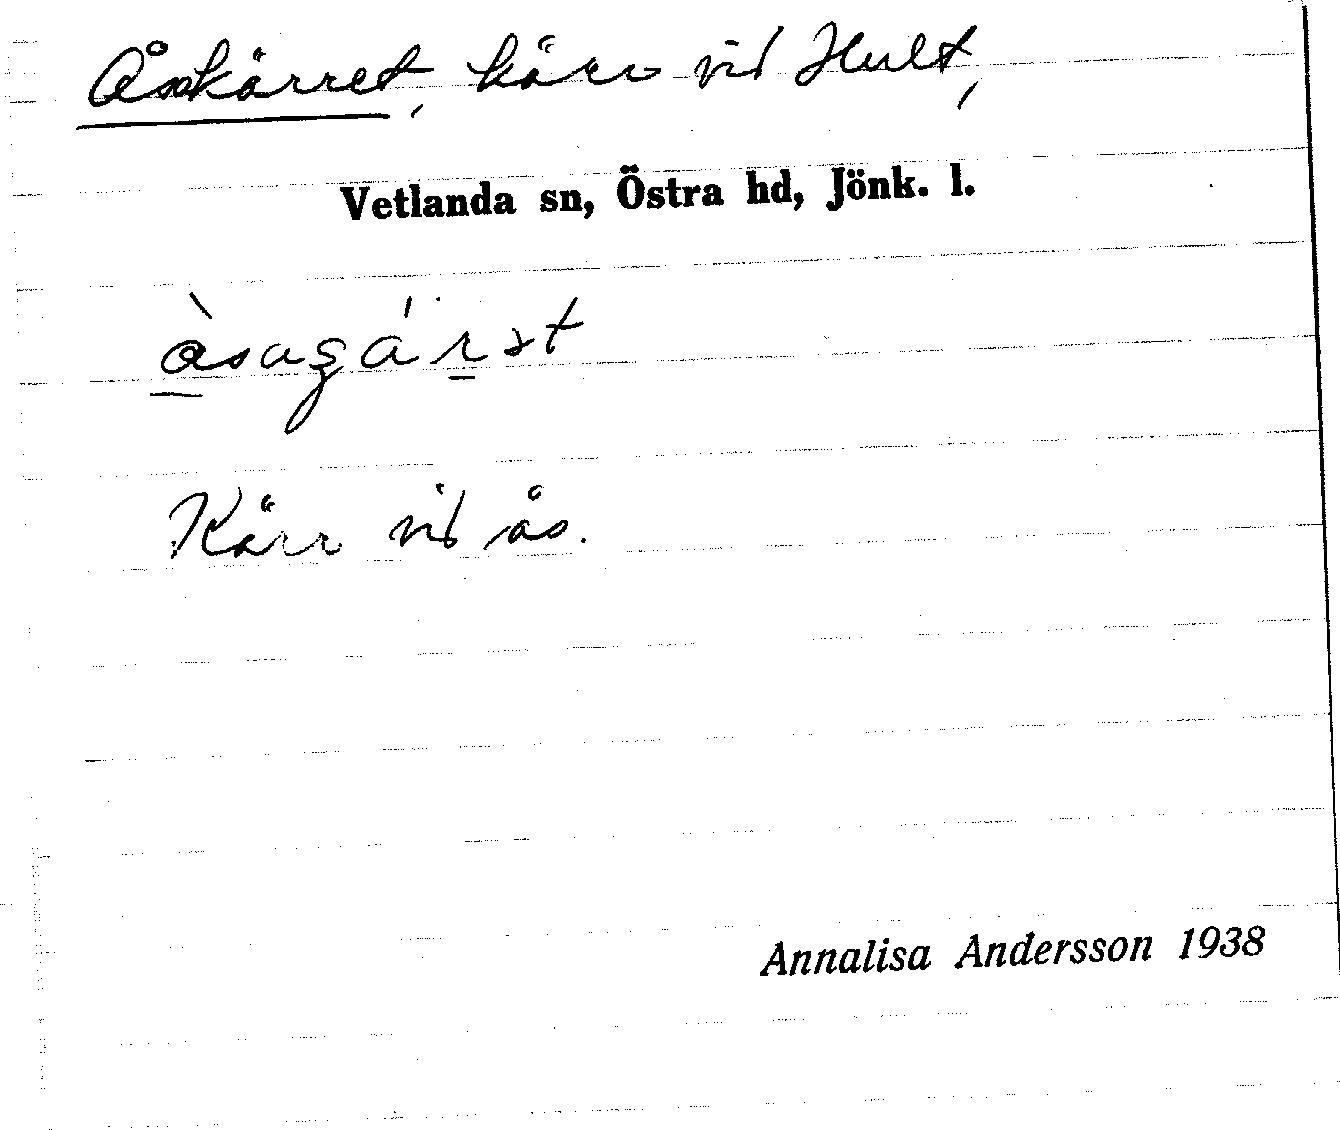 Åskärret, kärr vid Hult,
Vetlanda sn, Östra hd, Jönk. l.
Kärr vid ås.
Annalisa Andersson 1938